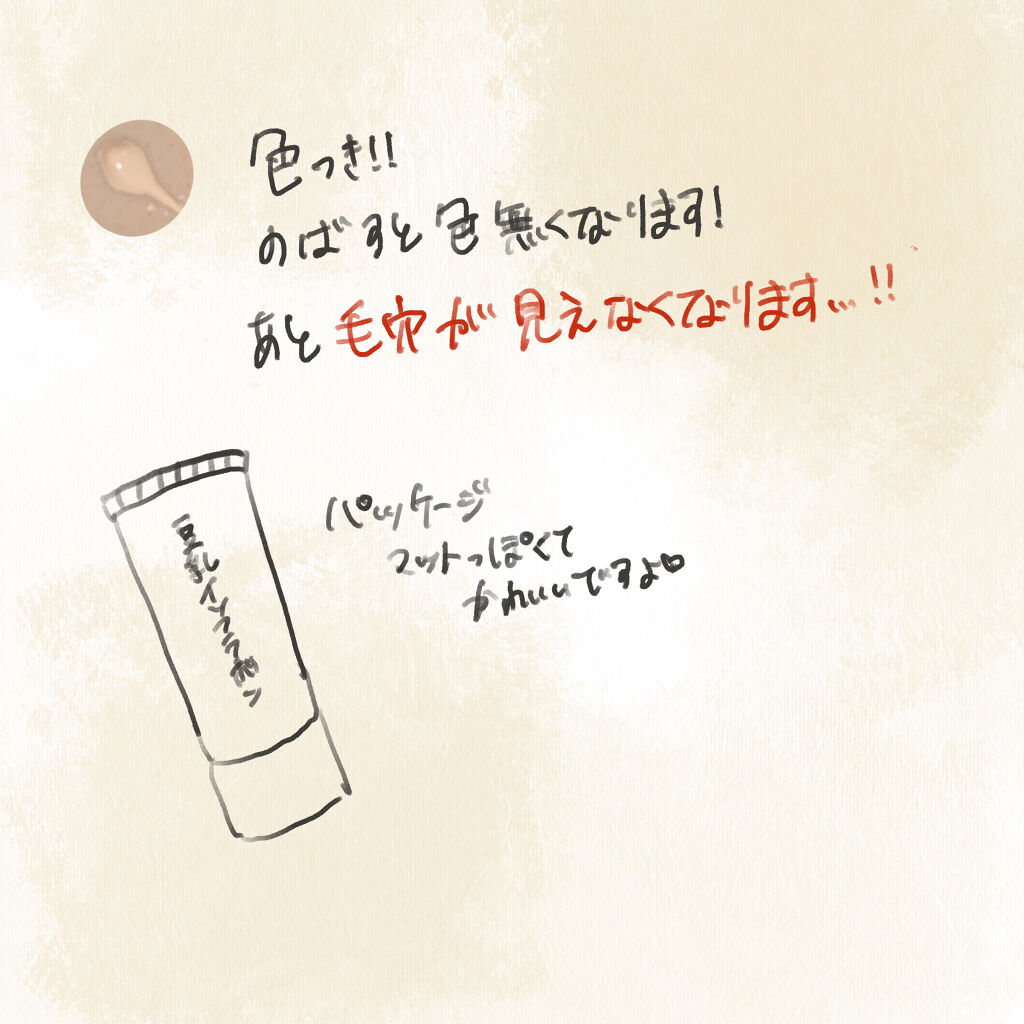 色つき!!
のばすと色無くなります!
あと毛穴が見えなくなります…!!
パッケージ
マットっぽくて
かわいいですよ♡
豆乳イソフラボン